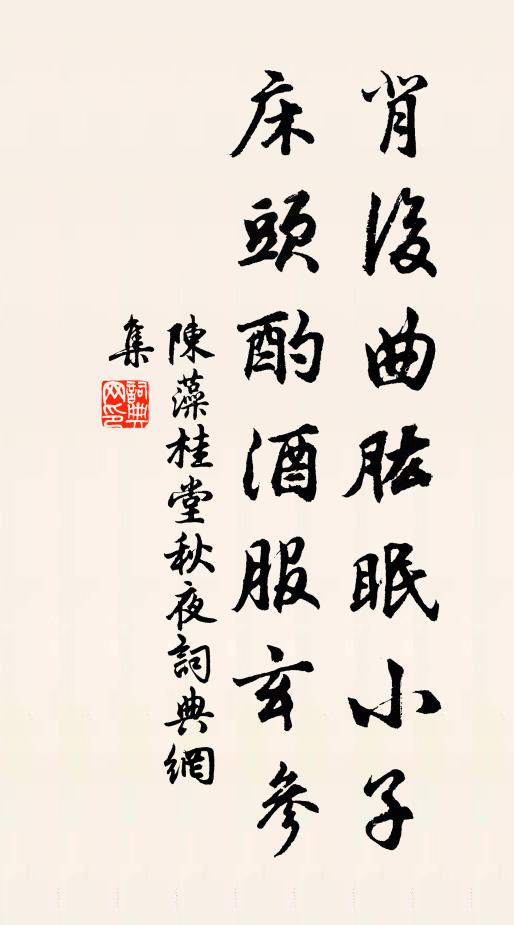 背後曲肱眠小子
床頭酌酒服玄參
陳藻桂堂秋夜詞典網
集
詞典
網印